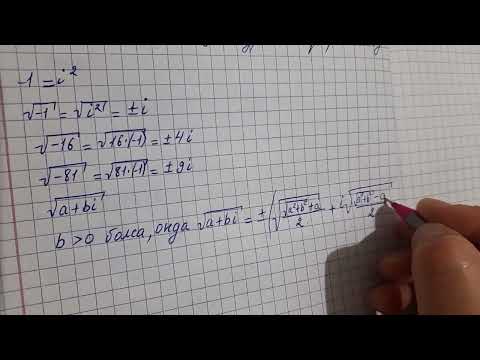 -1 = i²
√-1 = √i² = ±i
√-16 = √16·(-1) = ±4i
√-81 = √81·(-1) = ±9i
√a+bi
b>0 болса, онда √a+bi = ±(√(√a²+b²+a)/2 + i√(√a²+b²-a)/2